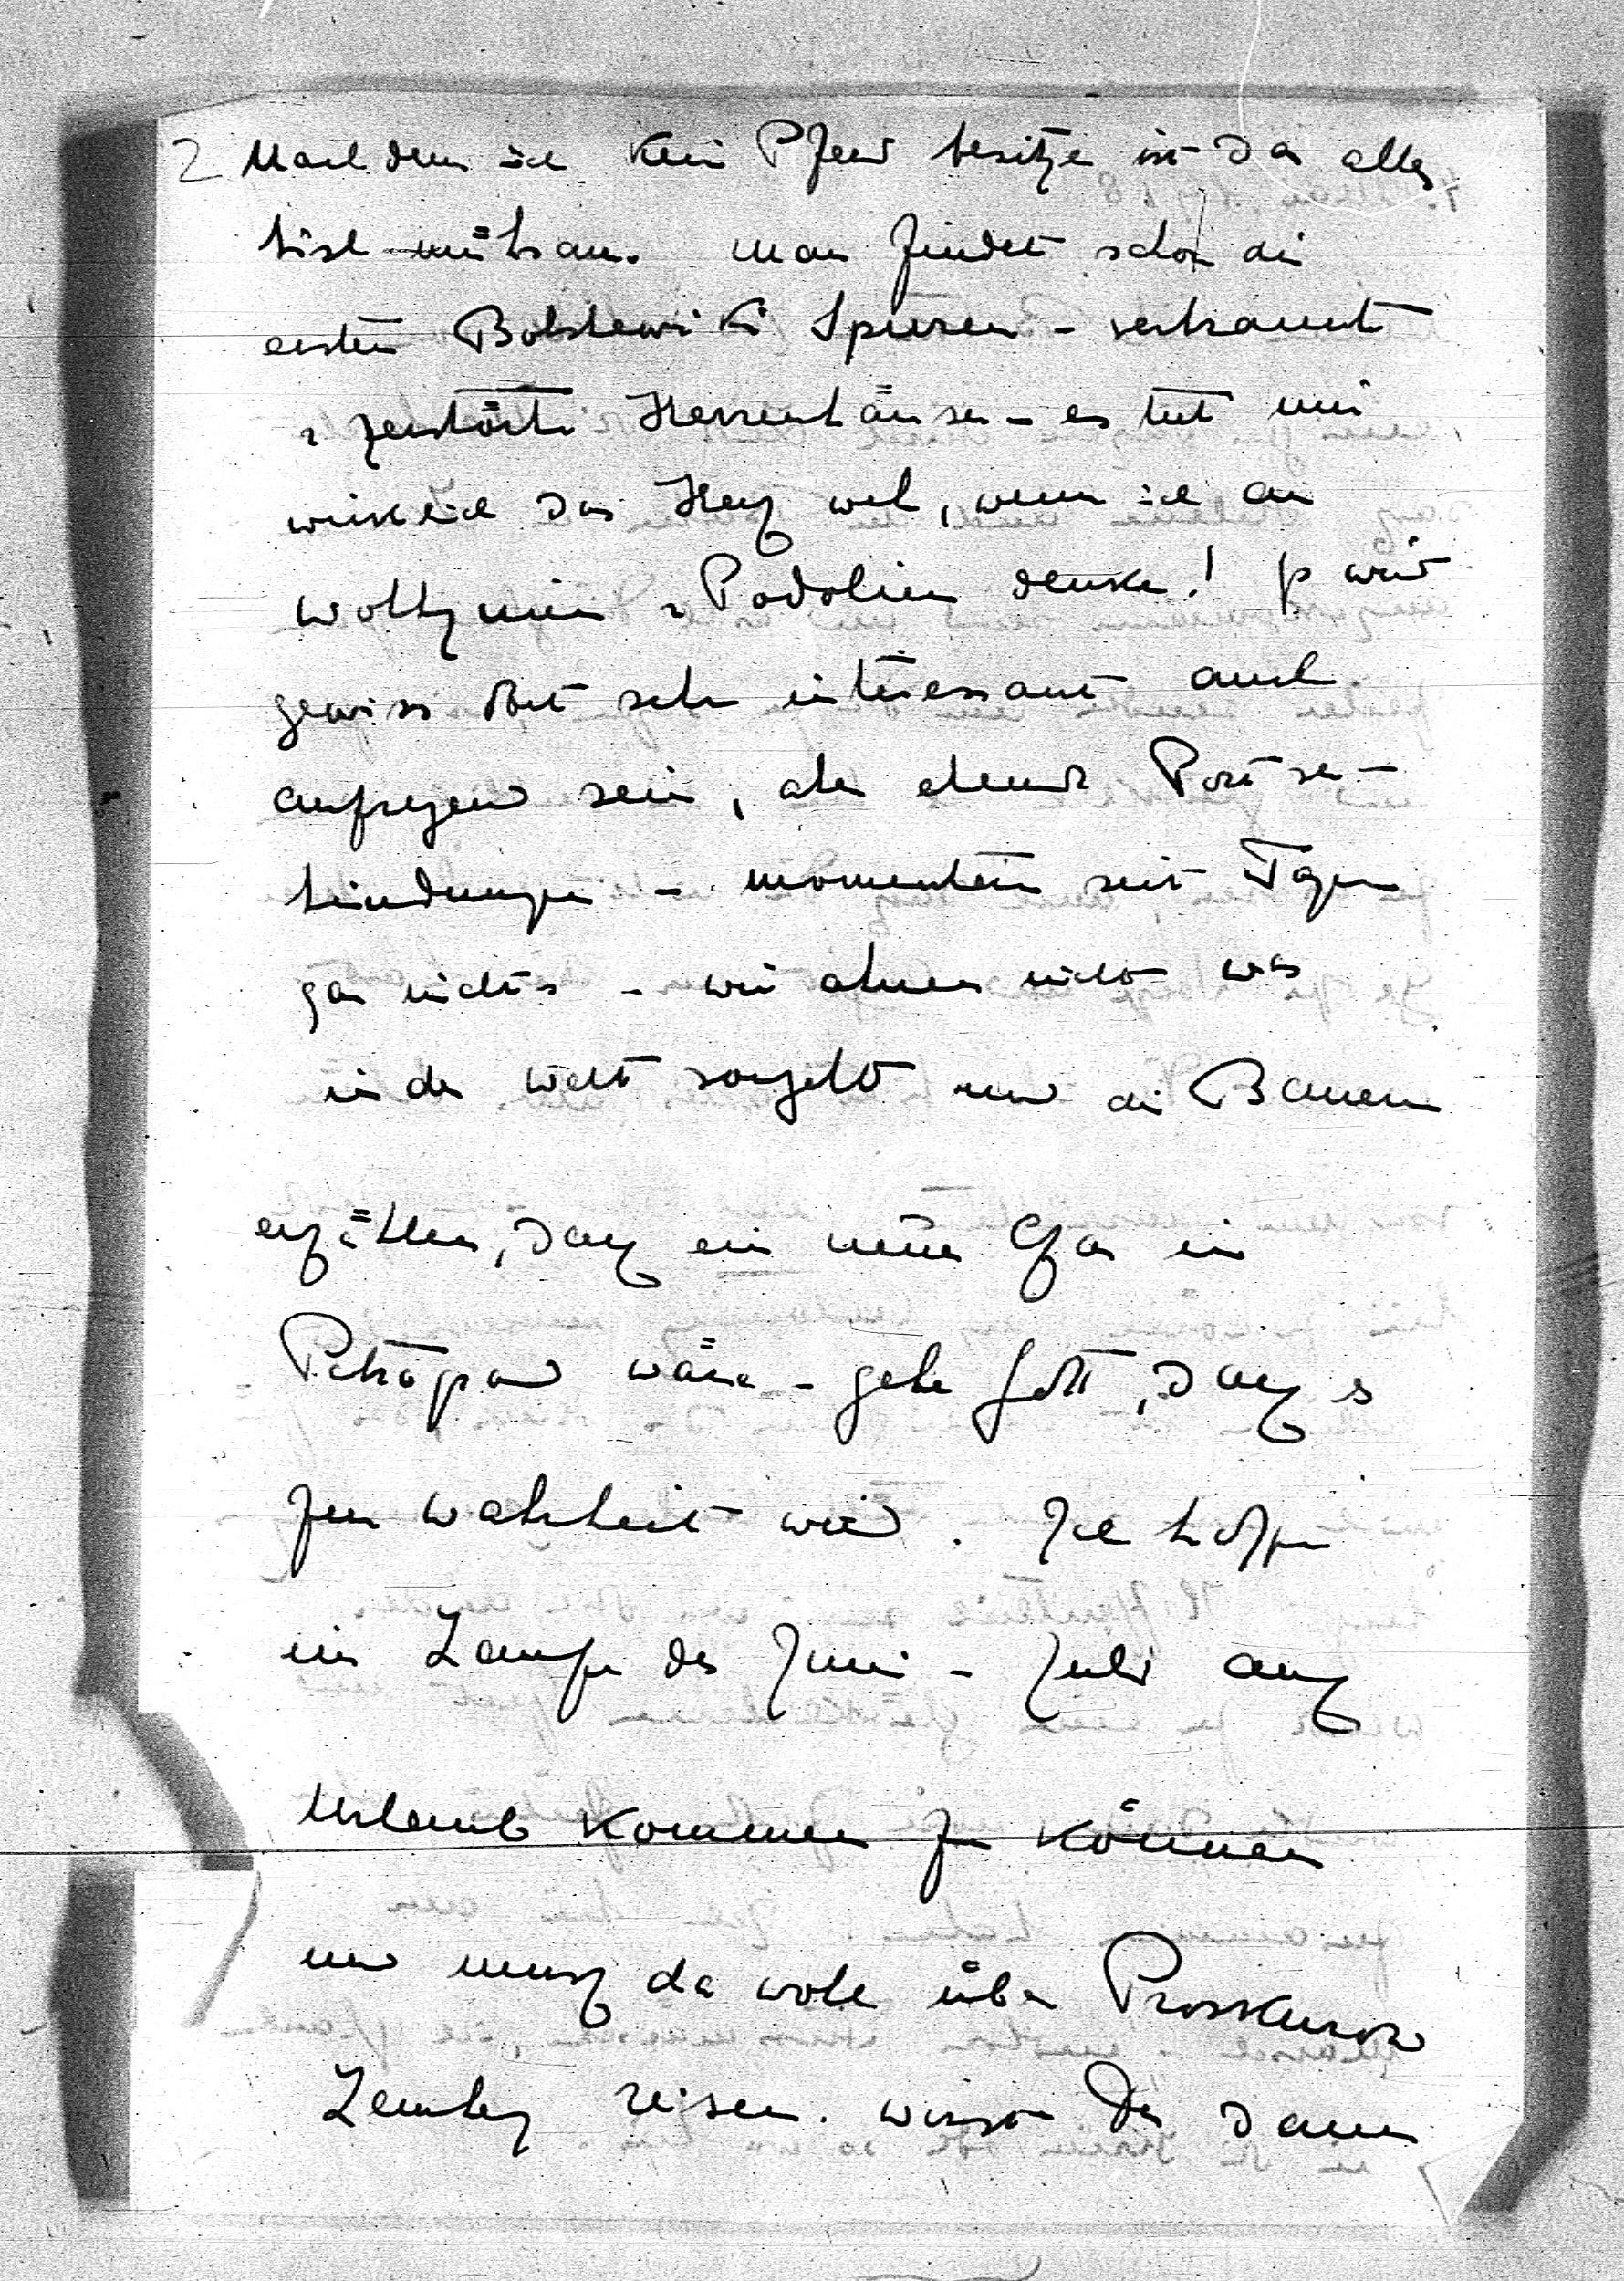 2 Nachdem ich kein Pferd besitze ist das alles
bisl mühsam. Man findet schon die
ersten Bolshewiki Spuren - verbrannt
u zerstörte Herrenhäuser - es tut mir
wirklich das Herz weh, wenn ich an
Wolhynien u Podolien denke! Es wird
gewiss dort sehr interessant auch
aufregend sein, aber elende Postver-
bindungen - momentan seit Tagen
gar nichts - wir ahnen nicht was
in der Welt vorgeht und die Bauern
erzählen, dasz ein neuer Czar in
Petrograd wäre - gebe Gott, dasz es
zur Wahrheit wird. Ich hoffe
im Laufe des Juni - Juli auf
Urlaub kommen zu können
und musz da wohl über Proskurow
Lemberg reisen. Wirst Du dann